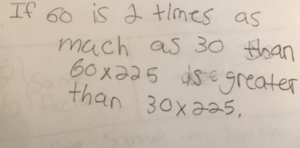 If 60 is 2 times as
much as 30 than
60x225 is greater
than 30x225.